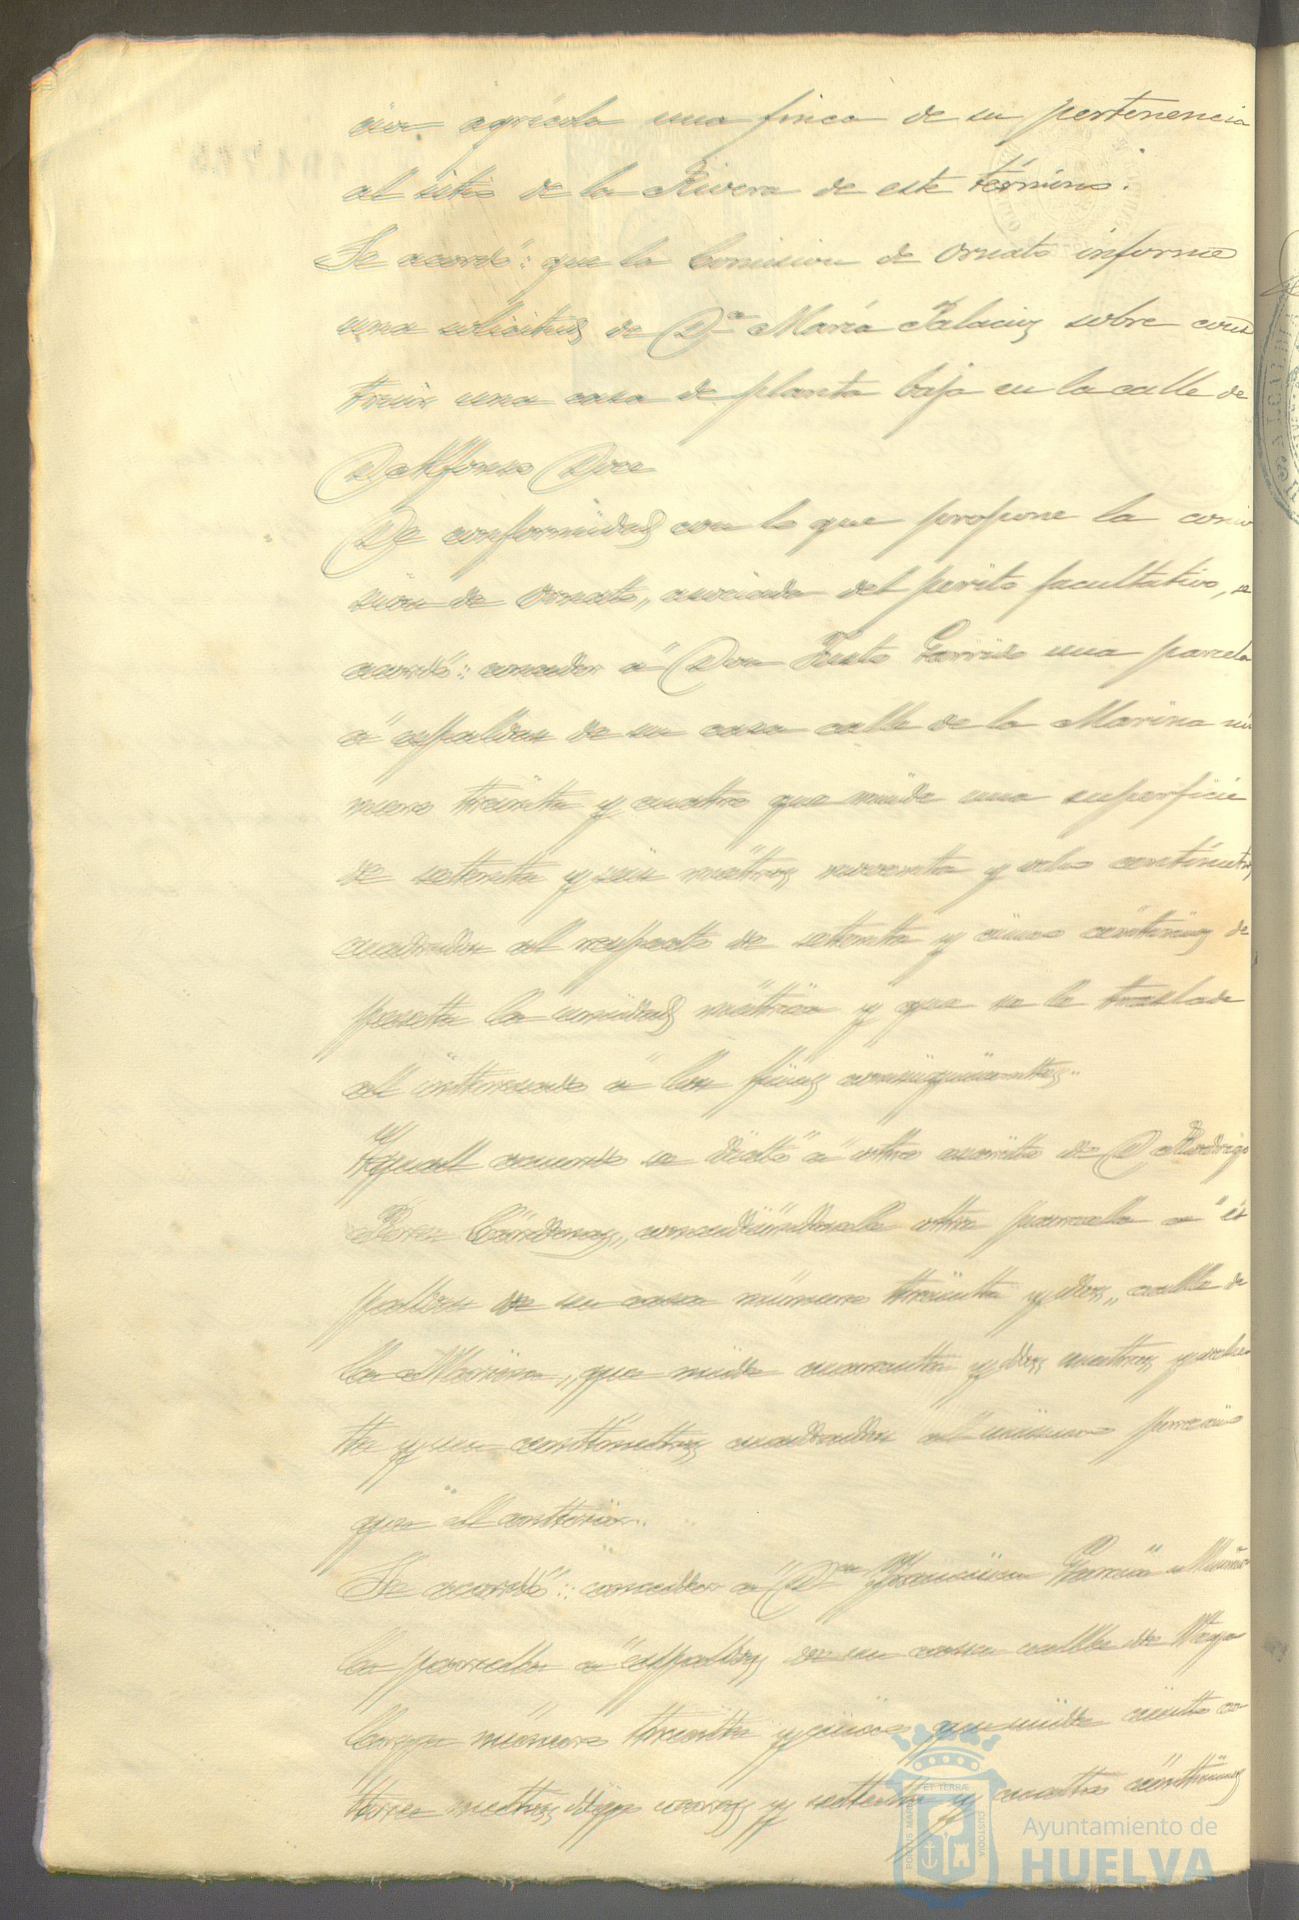 agrícola una finca de su pertenencia
al sitio de la Rivera de este término.
Se acordó: que la Comision de Ornato informe
una solicitud de Dª María Palacios sobre cons
truir una casa de planta baja en la calle de
D Alfonso Doce
De conformidad con lo que propone la comi
sión de Ornato, asociada del perito facultativo, se
acordó: conceder a Don Justo Garrido una parcela
a espaldas de su casa calle de la Marina nú
mero treinta y cuatro que mide una superficie
de setenta y seis metros noventa y ocho centímetros
cuadrados al respecto de setenta y cinco céntimos de
peseta la unidad métrica y que se le traslade
al interesado a los fines consiguientes.
Igual acuerdo se dictó a otro escrito de D Rodrigo
Pérez Cárdenas, concediéndosele otra parcela a es
paldas de su casa número treinta y dos, calle de
la Marina, que mide cuarenta y dos metros y ochen
ta y un centímetros cuadrados al mismo precio
que el anterior.
Se acordó: conceder a Dª Francisca García
la parcela a espaldas de su casa calle de Vega
larga número treinta y cinco que mide ciento ca
torce metros digo varas y setenta y cuatro céntimos
PORTUS MARIS ET TERRÆ CUSTODIA
Ayuntamiento de
HUELVA